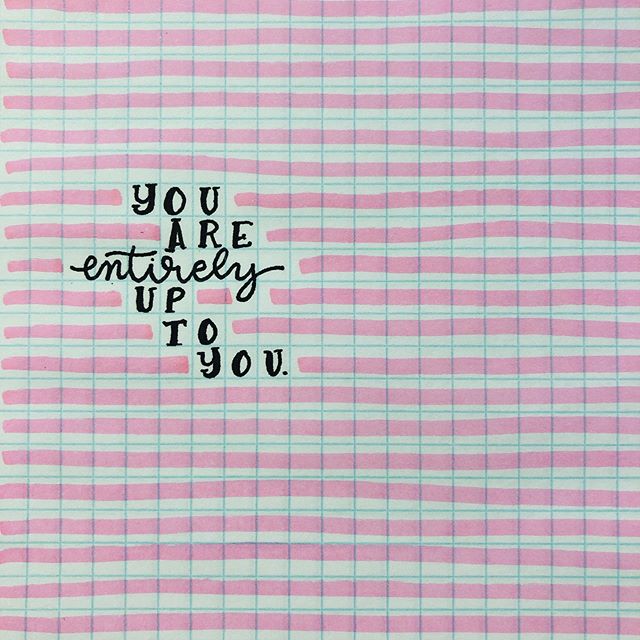 YOU
ARE
entirely
UP
TO
YOU.